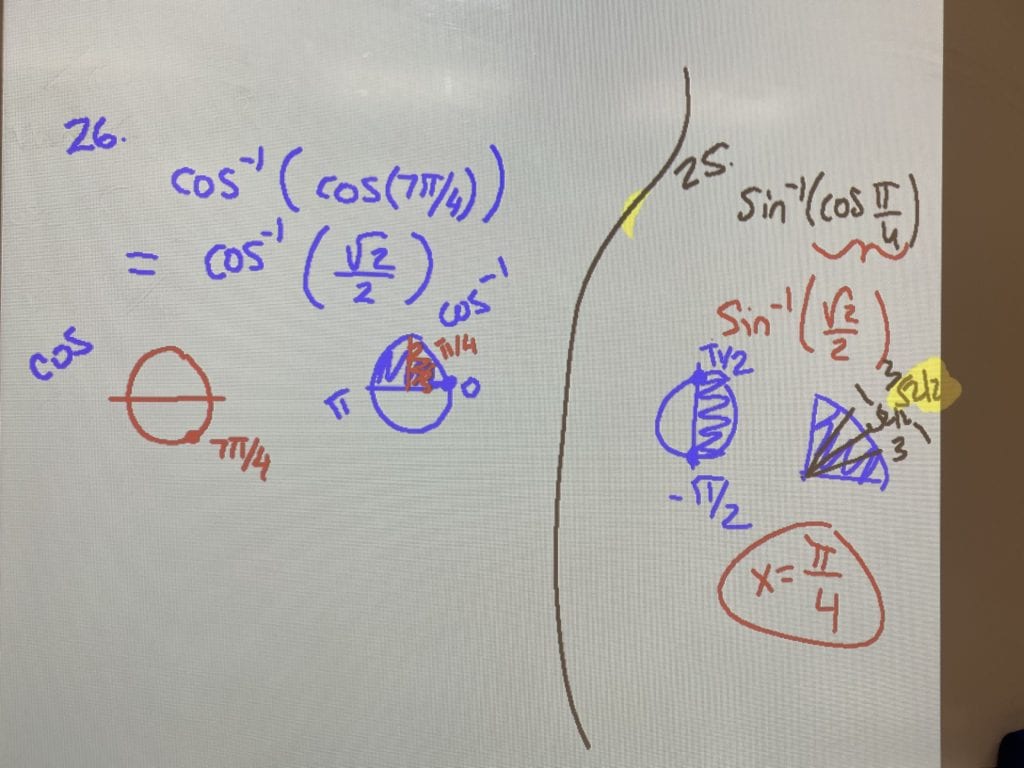 26.
cos⁻¹(cos(7π/4))
= cos⁻¹(√2/2)
cos
7π/4
cos⁻¹
π/4
π
0
25.
Sin⁻¹(cos π/4)
Sin⁻¹(√2/2)
π/2
-π/2
3
√2/2
1
3
1
x = π/4